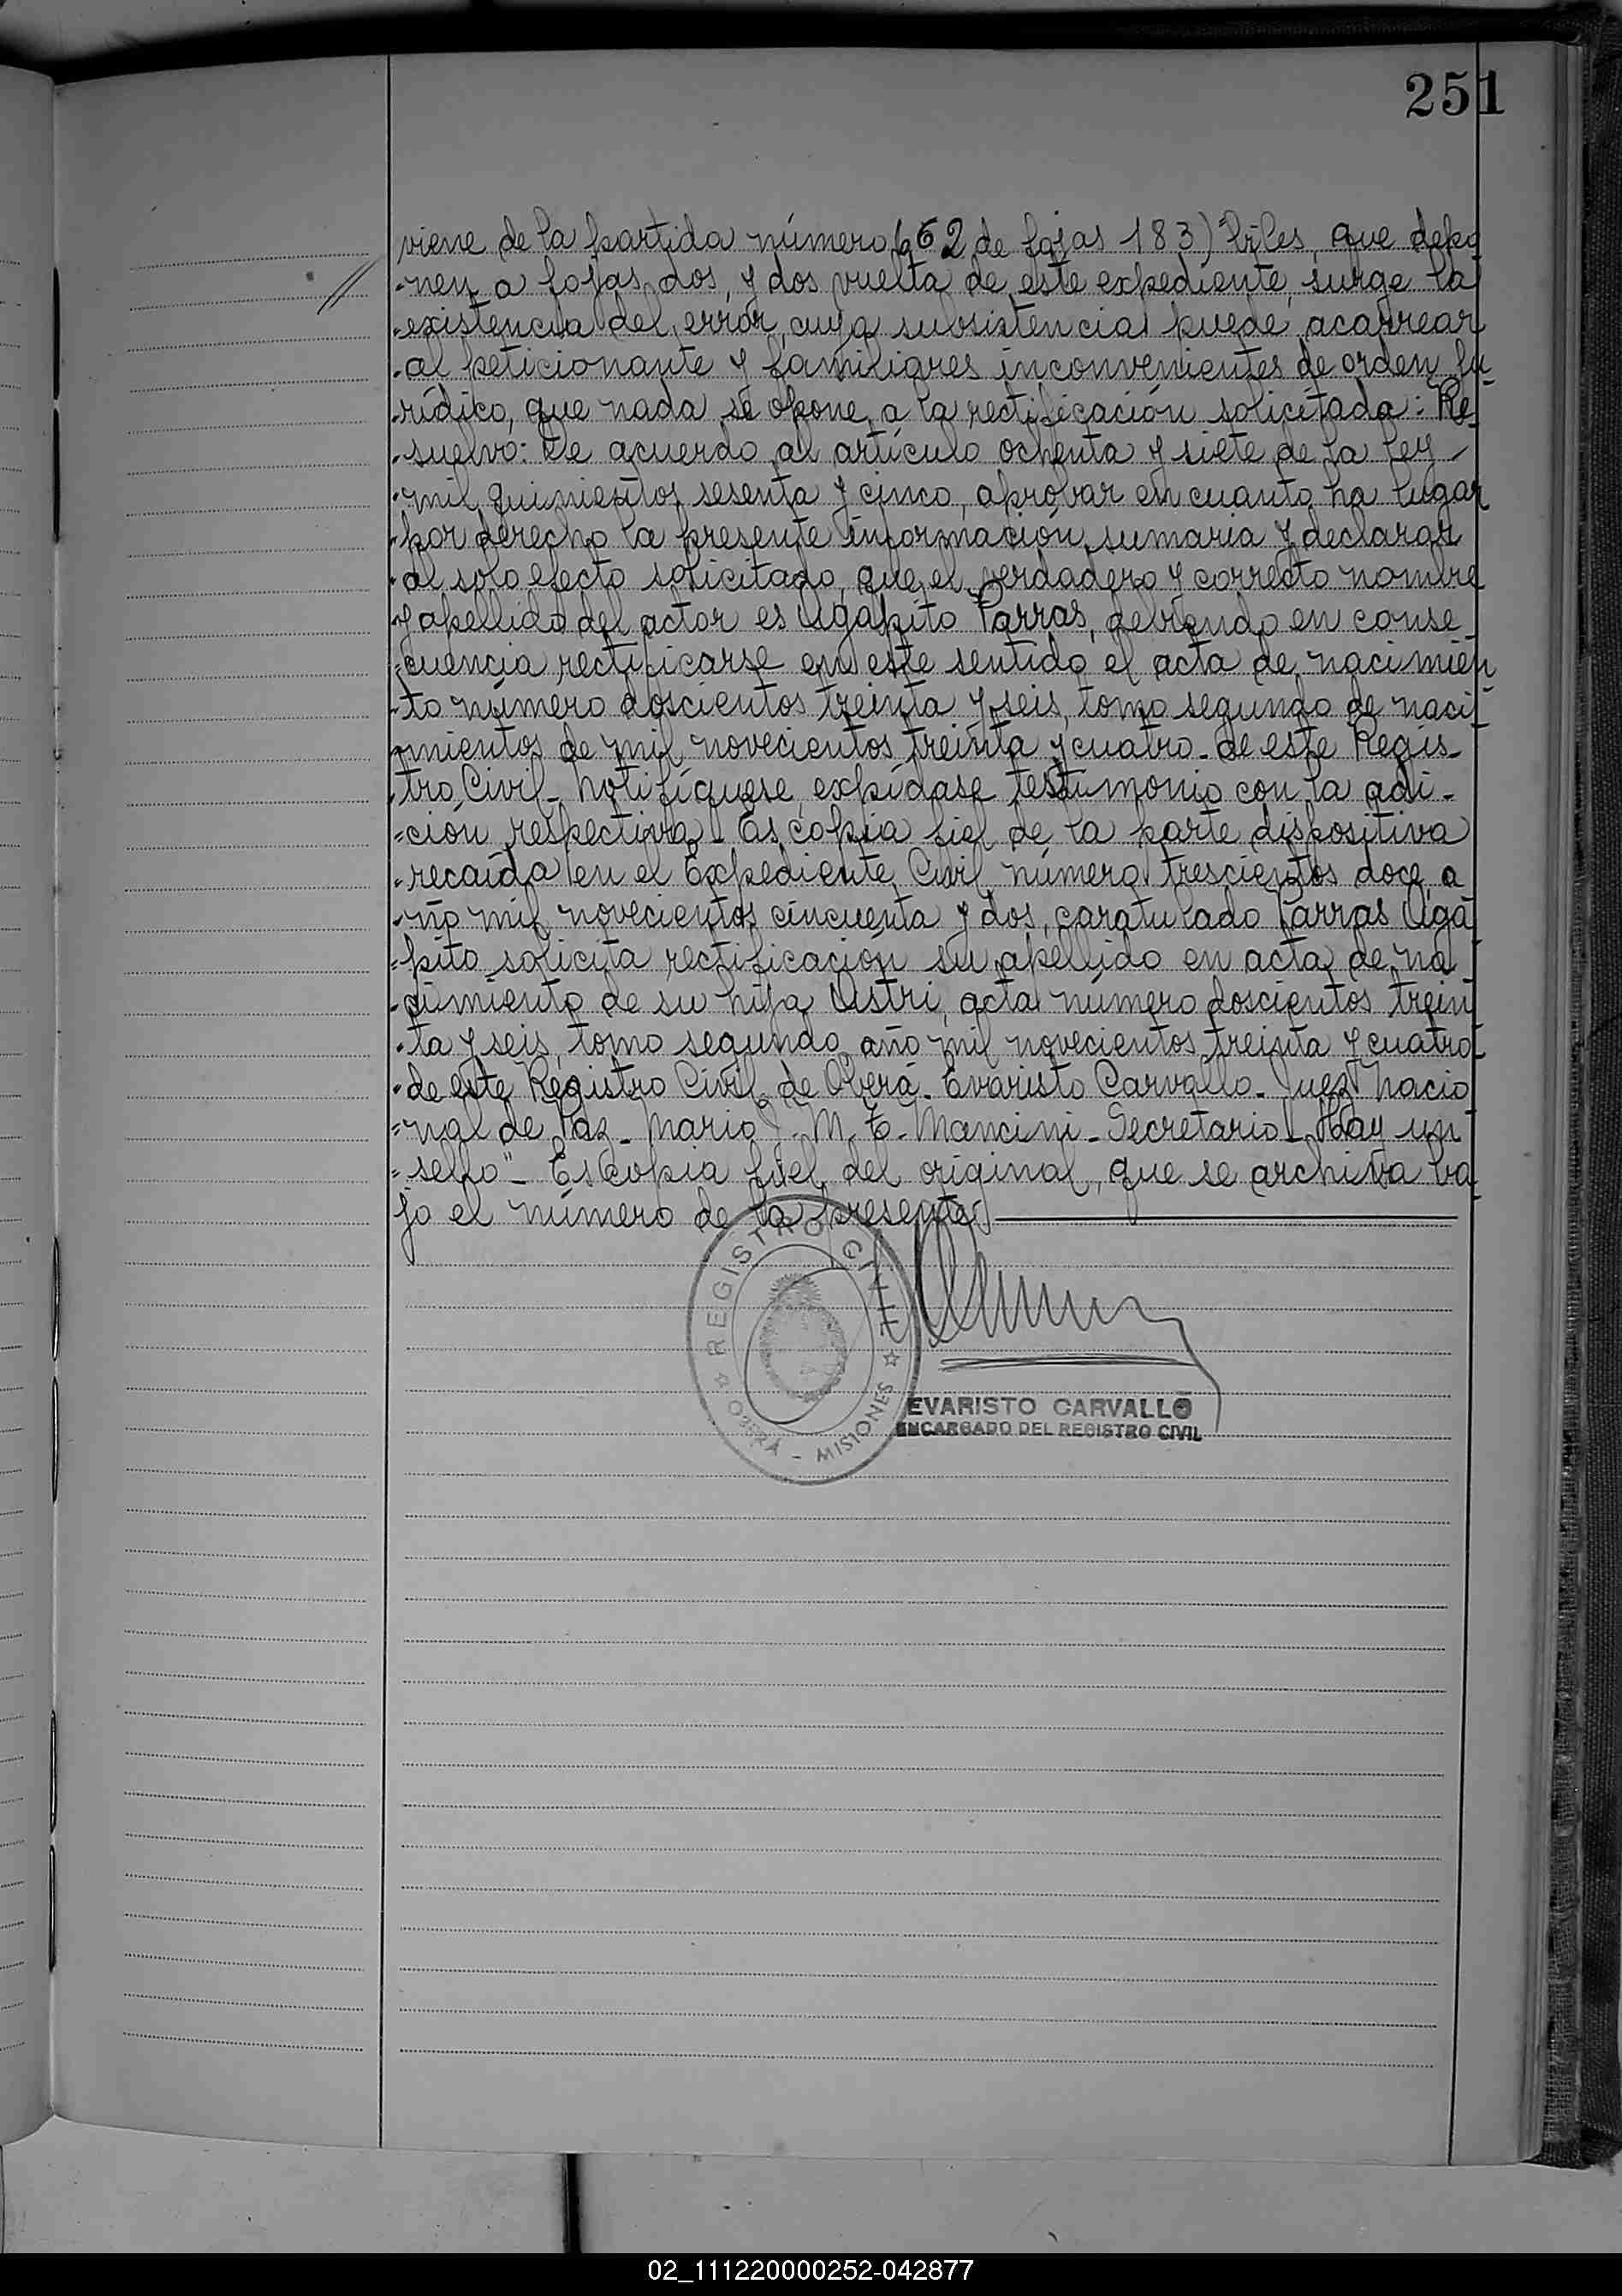 251
viene de la partida número 662 de fojas 183) "biles, que depo
"nen a fojas dos, y dos vuelta de este expediente, surge la
"existencia del error, cuya subsistencia puede acarrear
"al peticionante y familiares inconvenientes de orden ju-
"rídico, que nada se opone a la rectificación solicitada: Re-
"suelvo: De acuerdo al artículo ochenta y siete de la ley
"mil quinientos sesenta y cinco, aprobar en cuanto ha lugar
"por derecho la presente información sumaria y declarar
"al solo efecto solicitado, que el verdadero y correcto nombre
"y apellido del actor es Agapito Parras, debiendo en conse_
"cuencia rectificarse en este sentido el acta de nacimien-
"to número doscientos treinta y seis, tomo segundo de naci-
"mientos de mil novecientos treinta y cuatro - de este Regis-
"tro Civil - Notifíquese, expídase testimonio con la adi-
"ción respectiva - Es copia fiel de la parte dispositiva
"recaída en el Expediente Civil número trescientos doce, a
"ño mil novecientos cincuenta y dos, caratulado Parras Aga
"pito solicita rectificación su apellido en acta de na_
"cimiento de su hija Astri, acta número doscientos trein
"ta y seis, tomo segundo, año mil novecientos treinta y cuatro-
"de este Registro Civil de Oberá - Evaristo Carvallo - Juez Nacio
"nal de Paz - Mario J. M. E. Mancini - Secretario - Hay un
"sello" - Es copia fiel del original, que se archiva ba
jo el número de la presente
REGISTRO CIVIL
OBERÁ - MISIONES
EVARISTO CARVALLO
ENCARGADO DEL REGISTRO CIVIL
02_111220000252-042877